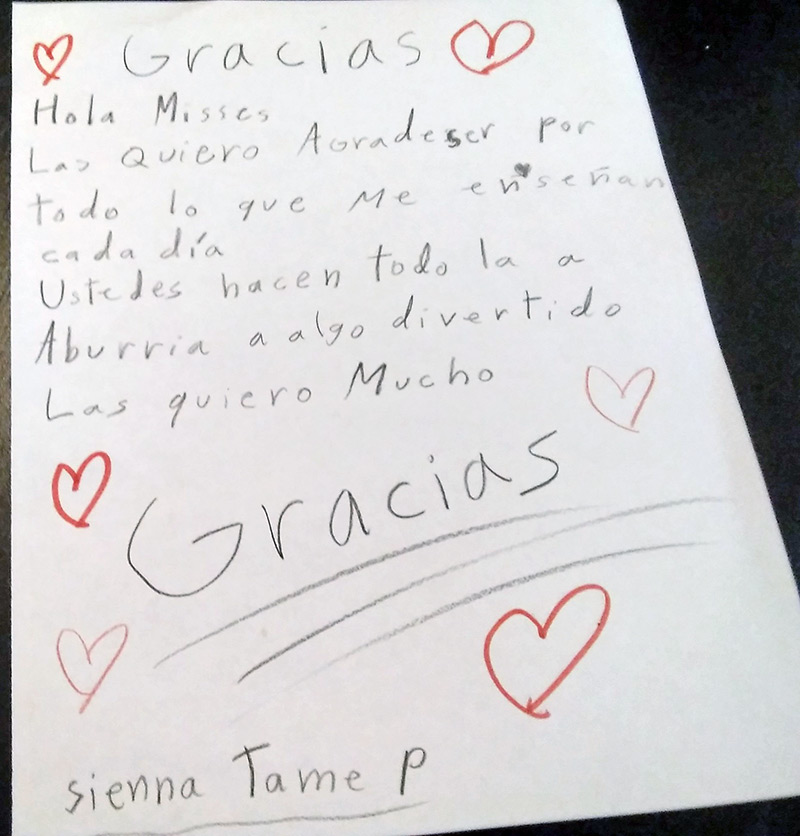 Gracias
Hola Misses
Las Quiero Agradeser por
todo lo que Me enseñan
cada día
Ustedes hacen todo la a
Aburria a algo divertido
Las quiero Mucho
Gracias
sienna Tame P